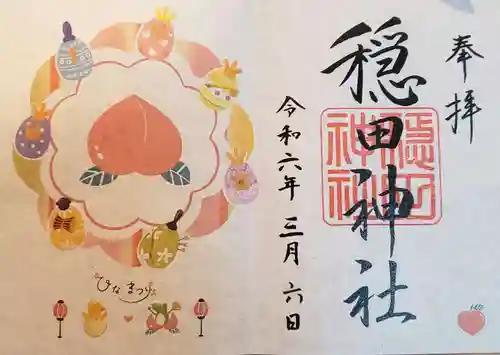 奉拝
穏田神社
穏田
神社
令和六年 三月 六日
ひなまつり